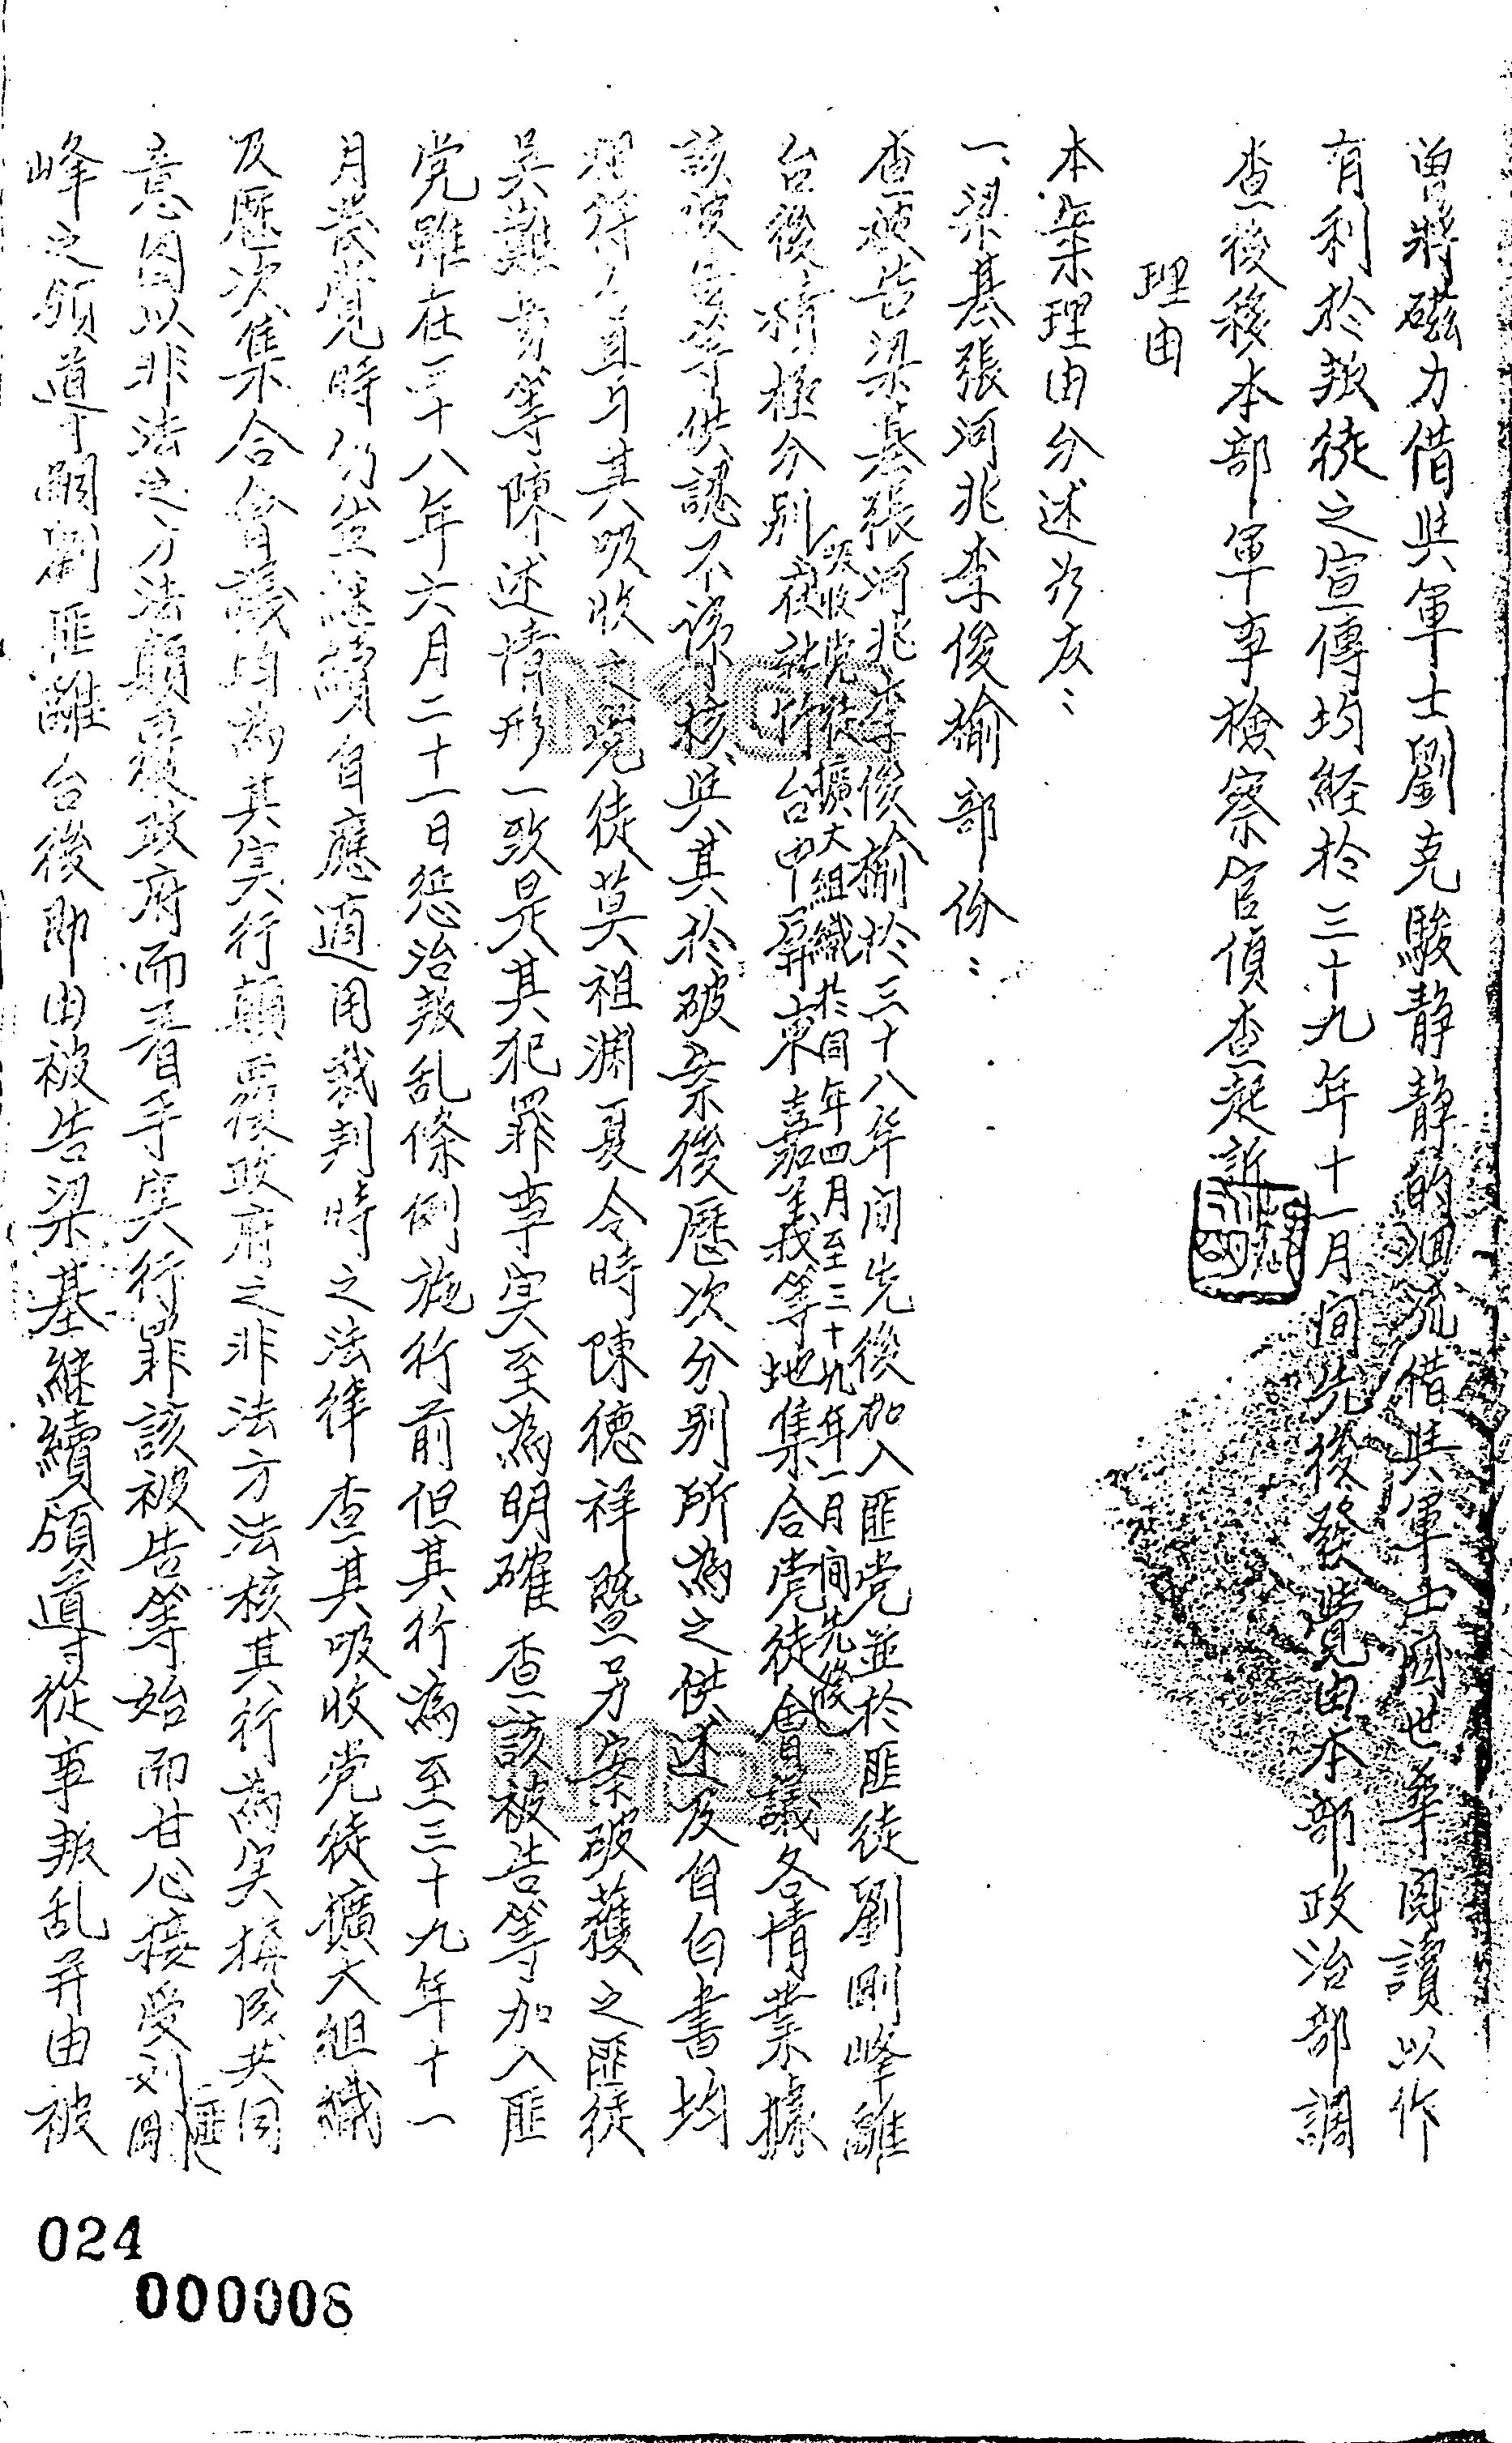 曾將磁力借與軍士劉克駿静静的洄流借與軍士閻世華閱讀以作
有利於叛徒之宣傳均経於三十九年十一月间先後發覺由本部政治部調
查後移本部軍事檢察官偵查起訴
理由
本案理由分述於左：
一、梁基張河兆李俊榆部份：
查被告梁基張河兆李俊榆於三十八年间先後加入匪党並於匪徒劉剛峰離
吸收党徒擴大組織於同年四月至三十九年一月间先後
台後積極分別在新竹台中屏東嘉義等地集合党徒會議各情業據
該被告等供認不諱核與其於破案後歷次分別所為之供述及自白書均
相符合且与其吸收之党徒莫祖渊夏令時陳德祥暨另案破獲之匪徒
吳難等陳述情形一致是其犯罪事実至為明確查該被告等加入匪
党雖在三十八年六月二十一日惩治叛乱條例施行前但其行為至三十九年十一
月發覺時仍在継續自應適用裁判時之法律查其吸收党徒擴大組織
及歷次集合會議均為其実行顛覆政府之非法方法核其行為実構成共同
意图以非法之方法顛覆政府而着手実行罪該被告等始而甘心接受刘匪剛
峰之領導嗣劉匪離台後即由被告梁基継續領導從事叛乱并由被
024
000008